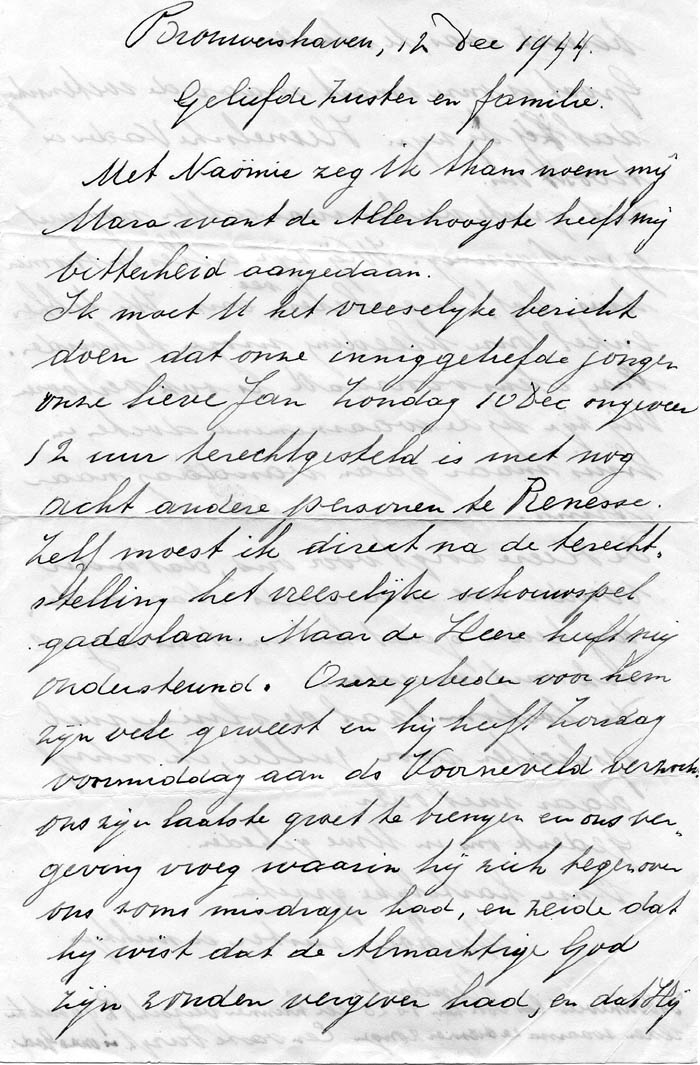 Brouwershaven, 12 Dec 1944.
Geliefde zuster en familie.
Met Naömie zeg ik thans noem mij
Mara want de Allerhoogste heeft mij
bitterheid aangedaan.
Ik moet U het vreeselyke bericht
doen dat onze inniggeliefde jongen
onze lieve Jan Zondag 10 Dec ongeveer
12 uur terechtgesteld is met nog
acht andere personen te Renesse.
Zelf moest ik direct na de terecht-
stelling het vreeselijke schouwspel
gadeslaan. Maar de Heere heeft mij
ondersteund. Onze gebeden voor hem
zijn vele geweest en hij heeft Zondag
voormiddag aan ds Voorneveld verzocht
ons zijn laatste groet te brengen en ons ver-
geving vroeg waarin hij zich tegenover
ons soms misdragen had, en zeide dat
hij wist dat de Almachtige God
zijn zonden vergeven had, en dat Hij